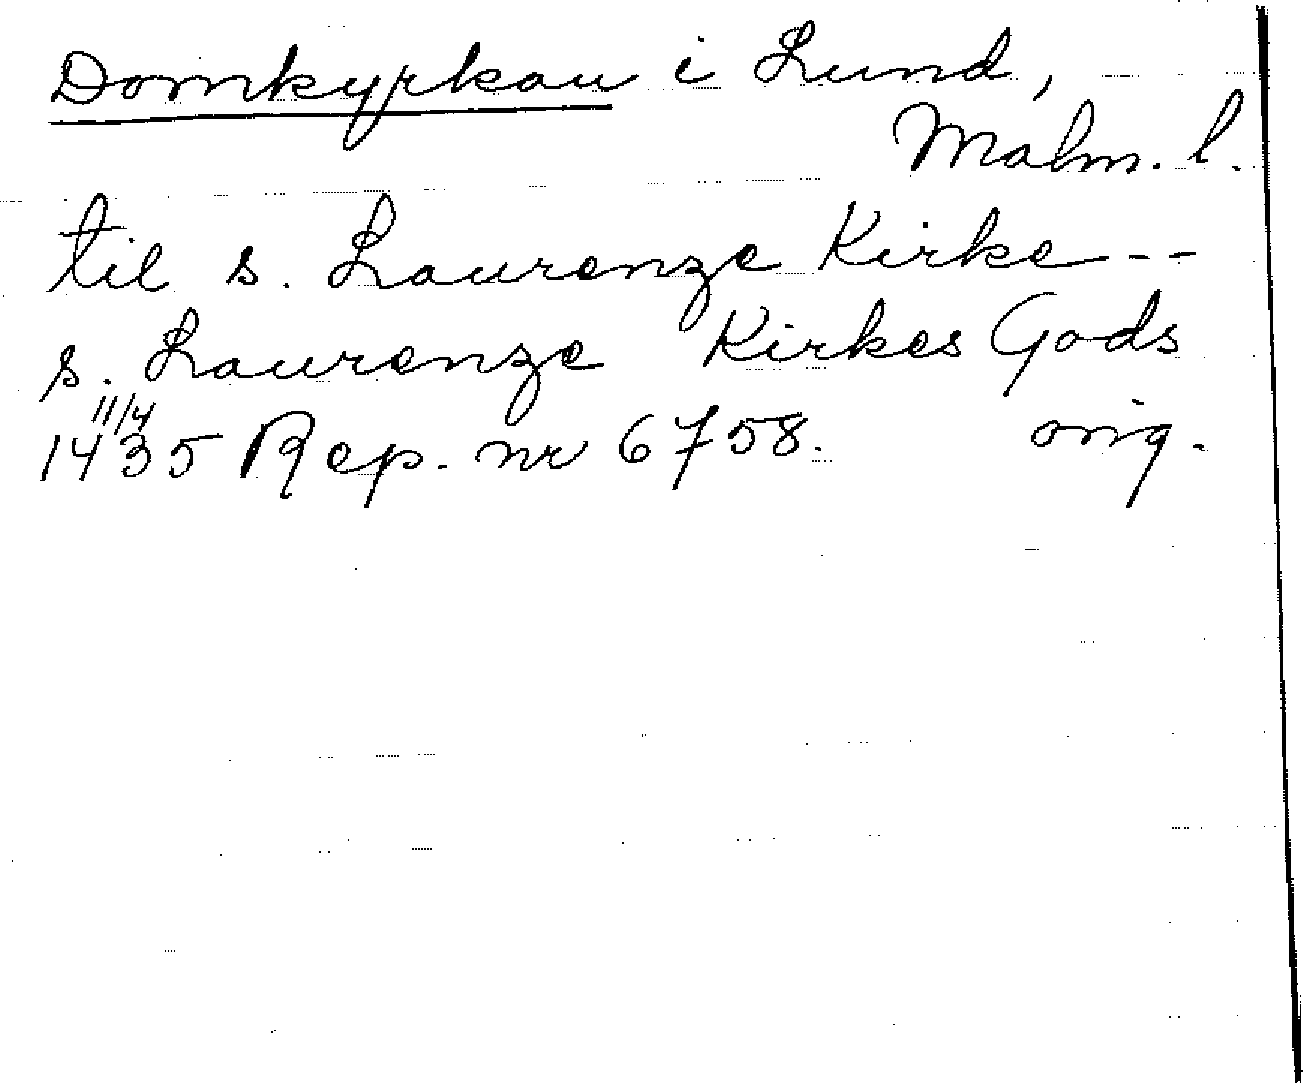 Domkyrkan i Lund,
Malm. l.
til s. Laurenze Kirke --
s. Laurenze Kirkes Gods
11/4
1435 Rep. nr 6758. orig.